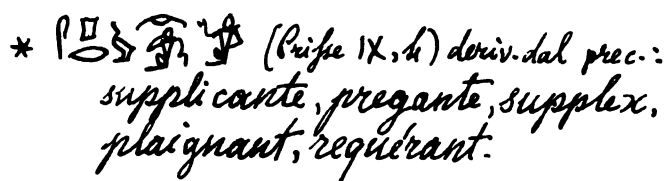 * (Prisse IX, 4) deriv. dal prec.:
supplicante, pregante, supplex,
plaignant, requérant.